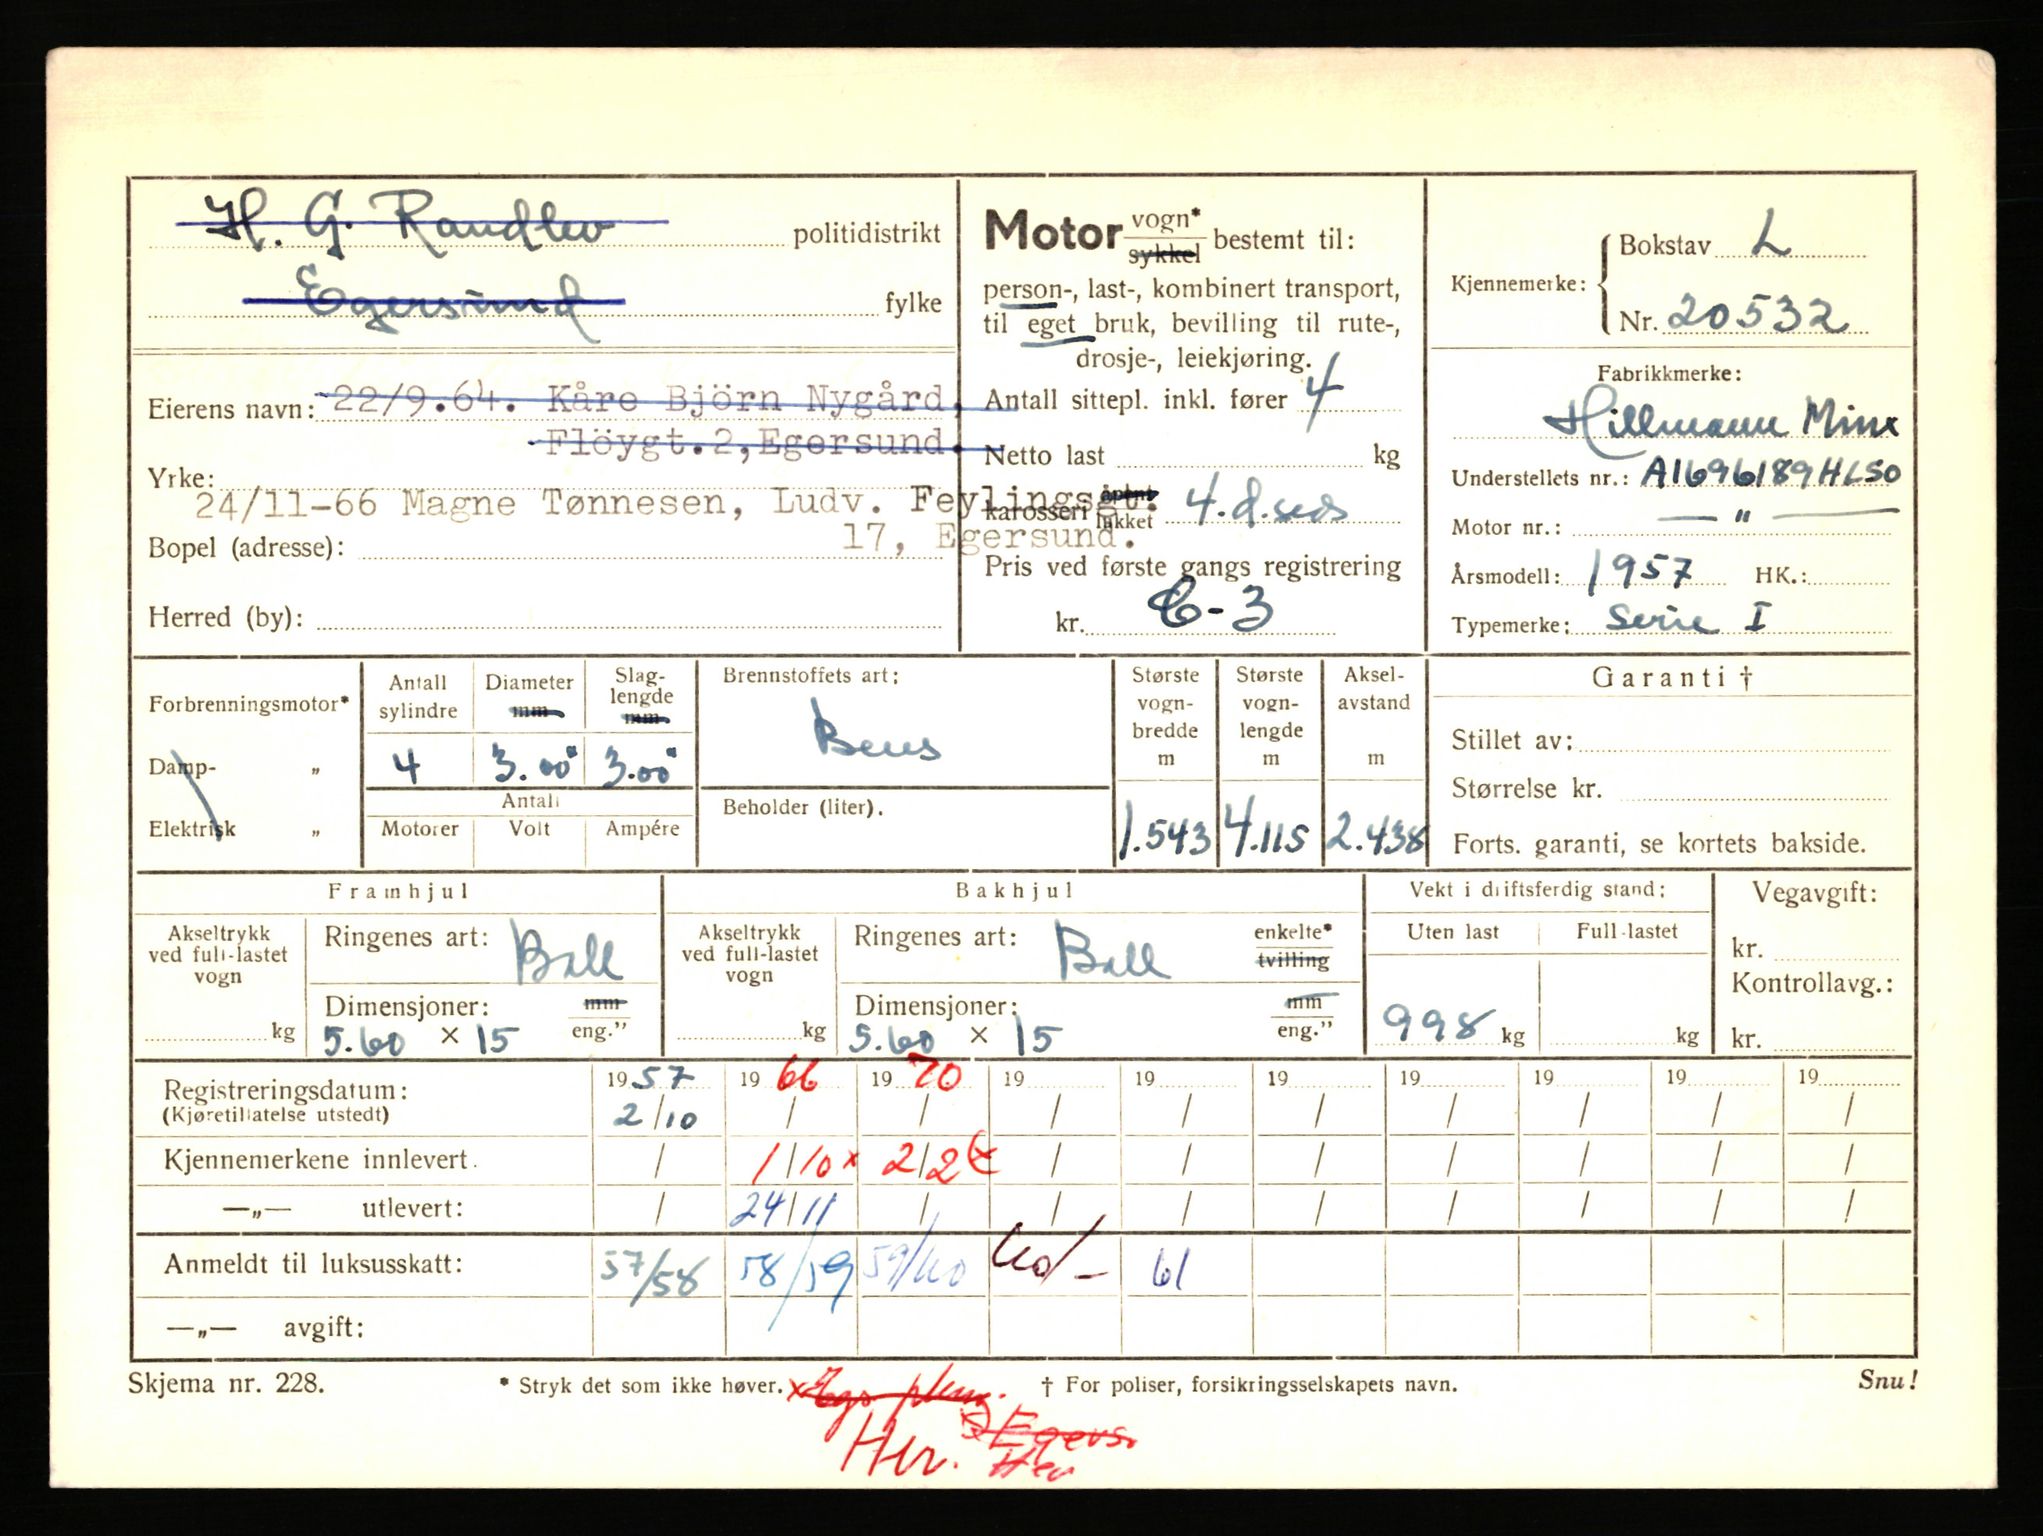 H. G. Raudlev politidistrikt
Egersund fylke
Eierens navn: 22/9.64. Kåre Björn Nygård,
Flöygt.2,Egersund.
Yrke:
24/11-66 Magne Tønnesen, Ludv. Feylingsgt.
17, Egersund.
Bopel (adresse):
Herred (by):
Motor vogn* sykkel bestemt til:
person-, last-, kombinert transport,
til eget bruk, bevilling til rute-,
drosje-, leiekjøring.
Antall sittepl. inkl. fører 4
Netto last kg
karosseri åpent lukket 4.d.seds
Pris ved første gangs registrering
kr. C-3
Kjennemerke: Bokstav L
Nr. 20532
Fabrikkmerke:
Hillmann Minx
Understellets nr.: A1696189HLSO
Motor nr.: — " —
Årsmodell: 1957 HK.:
Typemerke: Serie I
Forbrenningsmotor*
Damp- „
Elektrisk „
Antall sylindre 4
Diameter mm 3.00"
Slag-lengde mm 3.00"
Antall
Motorer Volt Ampére
Brennstoffets art:
Bens
Beholder (liter).
Største vogn-bredde m 1.543
Største vogn-lengde m 4.115
Aksel-avstand m 2.438
Garanti †
Stillet av:
Størrelse kr.
Forts. garanti, se kortets bakside.
Framhjul
Akseltrykk ved full-lastet vogn kg
Ringenes art: Ball
Dimensjoner: mm eng."
5.60 × 15
Bakhjul
Akseltrykk ved full-lastet vogn kg
Ringenes art: Ball enkelte* tvilling
Dimensjoner: mm eng."
5.60 × 15
Vekt i driftsferdig stand:
Uten last Full-lastet
998 kg kg
Vegavgift:
kr.
Kontrollavg.:
kr.
Registreringsdatum: 1957 1966 1970 19 19 19 19 19 19 19
(Kjøretillatelse utstedt) 2/10 / / / / / / / / /
Kjennemerkene innlevert. / 1/10 x 2/2 (x / / / / / / /
—„— utlevert: / 24/11 / / / / / / / /
Anmeldt til luksusskatt: 57/58 58/59 59/60 60/- 61
—„— avgift:
Skjema nr. 228. * Stryk det som ikke høver. † For poliser, forsikringsselskapets navn. Snu!
x Egs.
Her. (x) Egers.
Her